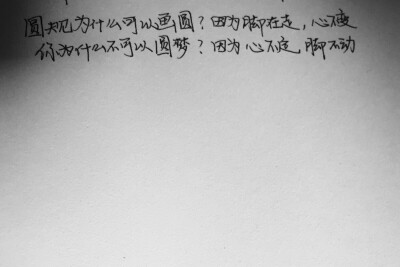 圆规为什么可以画圆？因为脚在走，心不变
你为什么不可以圆梦？因为心不定，脚不动